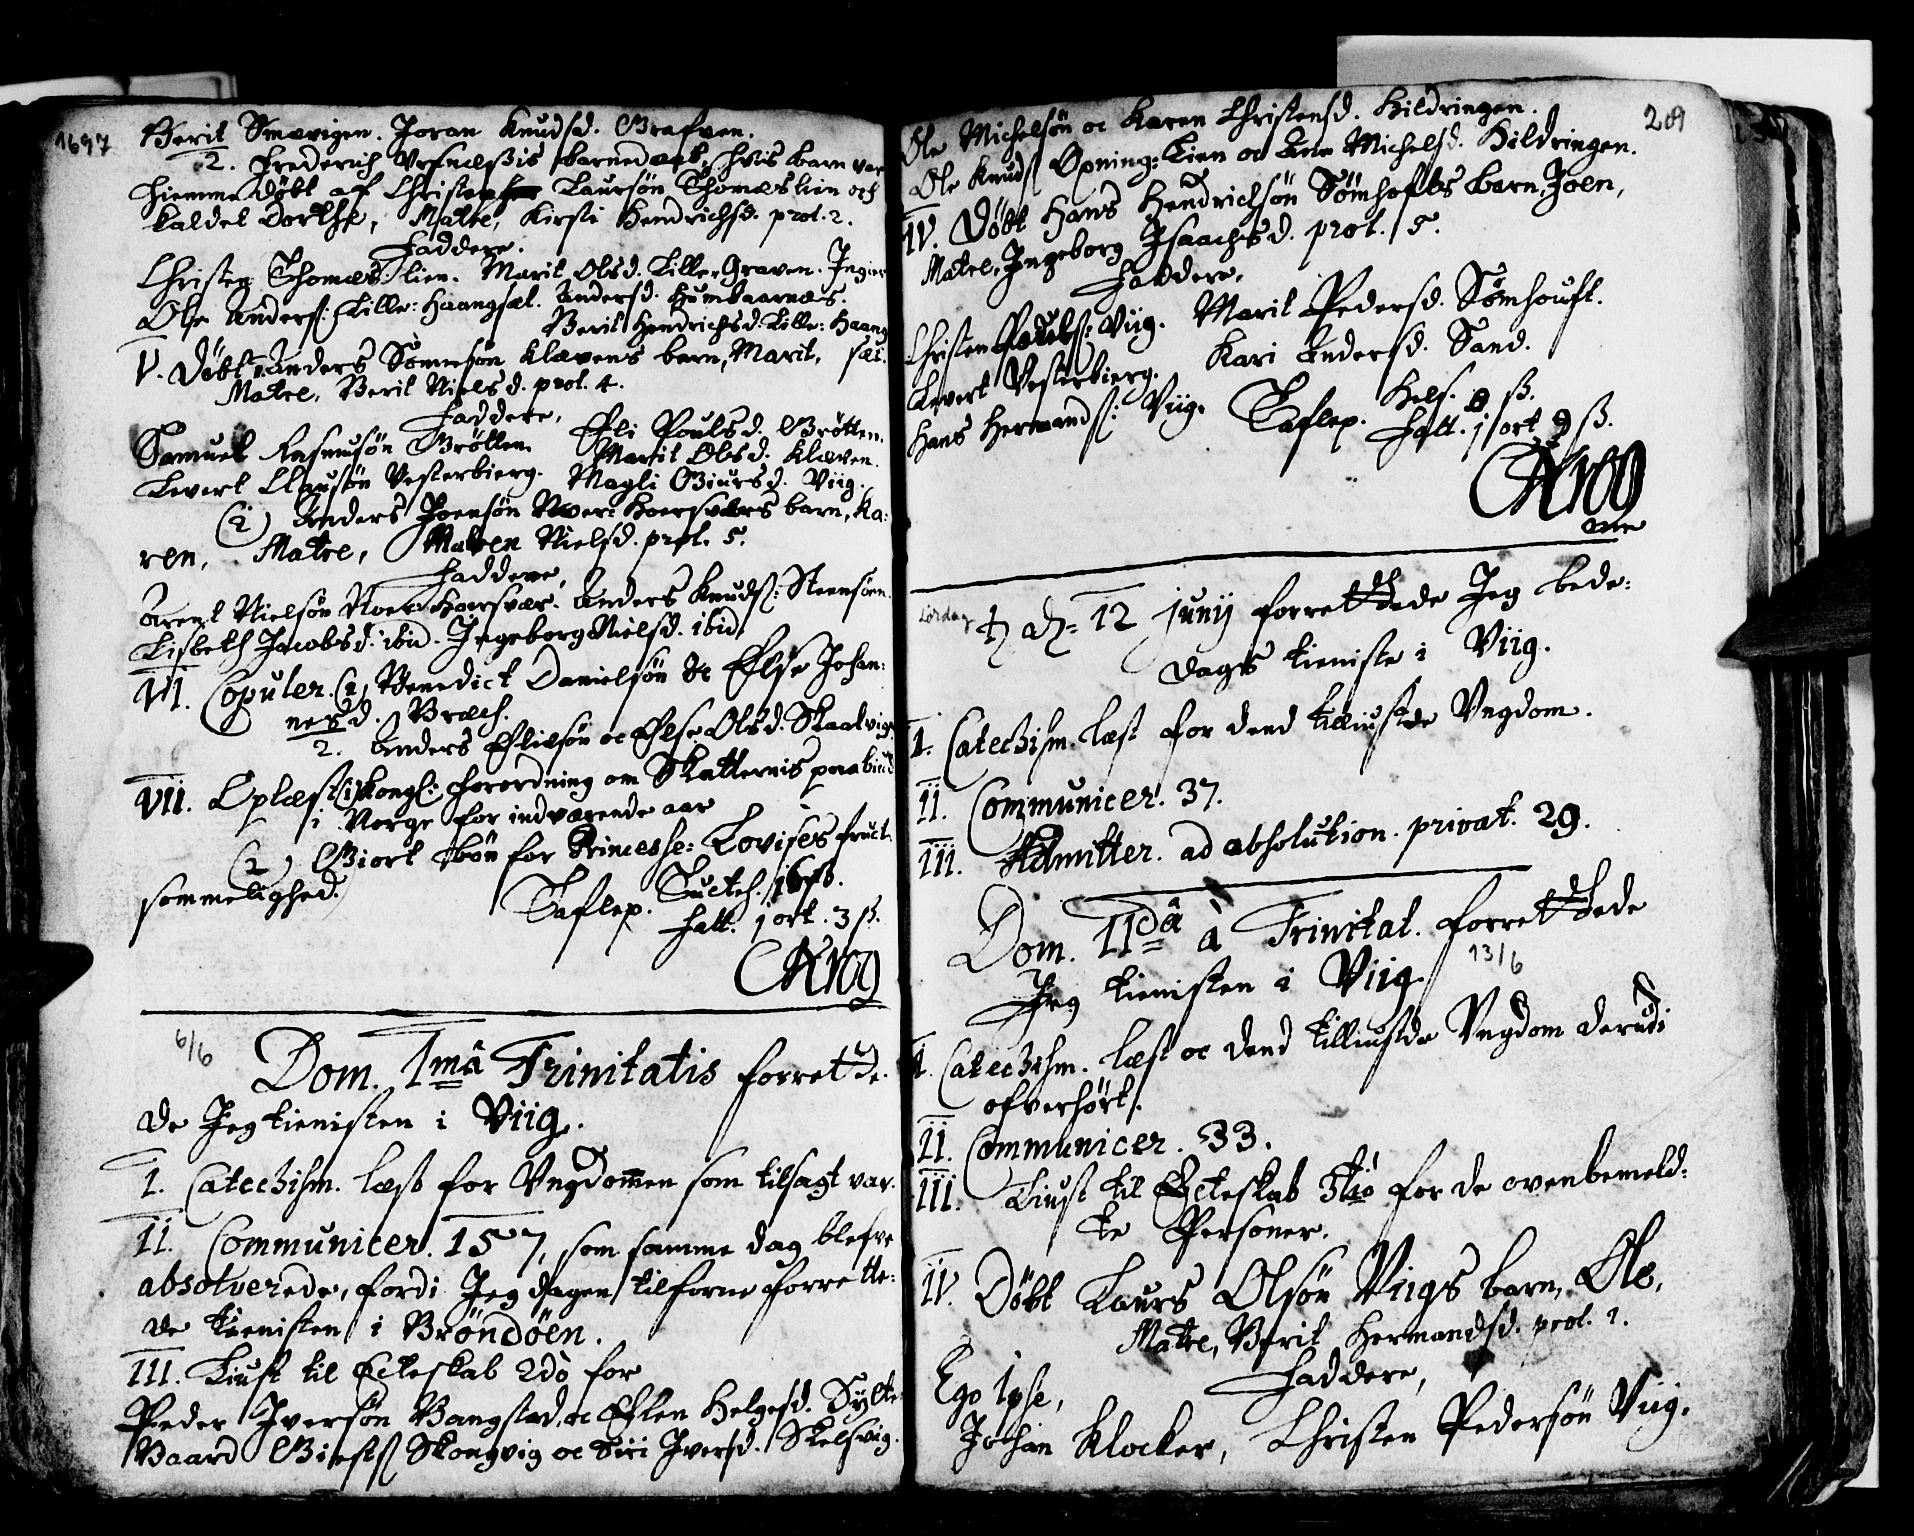 1697
Berit Smevigen. Joran Knudsd. Grafven.
2. Frederich Ursnæssis barnedaab, hvis barn var
hiemmedøbt af Christen Laursøn Thomeslien och
kaldet Dorthe, Matre, Kirsti Hendrichsd. prol. 2.
Faddere.
Christen Thomeslien. Marit Olsd. Lille-Graven.
Ole Anders: Lille-Haangsæt. Andersd. Humbaarnæs.
Berit Hendrichsd. Lille: Haang
V. Døbt Anders Sønnesøn Klævens barn, Marit, sæt.
Matre, Berit Nielsd. prol. 4.
Faddere,
Samuel Rasmusøn Brøtten. Eli Poulsd. Brøtten.
Marit Olsd. Klæven.
Levert Clausøn Vesterbierg. Magli Giursd. Viig.
(2) Anders Joensøn Noer-Hoersværs barn, Ka:
ren, Matre, Maren Nielsd. prol. 5.
Faddere,
Arent Nielsøn Noer Hoersvær. Anders Knuds: Steensøen
Lisbeth Jacobsd. ibid. Ingeborg Nielsd. ibid.
VI. Copuler. (1) Benedict Danielsøn oc Else Johan:
nesd. Bræch.
2. Anders Ellisøn oc Else Olsd. Skaalvig
VII. Oplæst (1) Kongl: Forordning om Skatternis paabud
i Norge for indværende aar
(2) Giort bøn for Princesse: Lovises fruct:
sommelighed.
Taflep. Suctes. 16 ß.
Fatt. 1 ort. 3 ß.
CKrog
6/6
Dom. 1mâ Trinitatis forrettede
de Jeg tienisten i Viig.
I. Catechism. læst for Ungdommen som tilsagt var.
II. Communicer. 157, som samme dag blefve
absolverede, fordi Jeg dagen tilforne forrette:
de tienisten i Brøndøen.
III. Liust til Ecteskab 2dò for
Peder Iversøn Bangstad oc Ellen Helgesd. Sylte
Baard Skongvig oc Siri Iversd. Skelsvig.
209
Ole Michelsøn oc Karen Christensd. Hildringen.
Ole Knuds Opning: Lien oc Ane Michelsd. Hildringen.
IV. Døbt Hans Hendrichsøn Sømhofts barn, Joen,
Matre, Ingeborg Isaachsd. prol. 5.
Faddere,
Christen Pouls: Viig. Marit Pedersd. Sømhouft.
Levert Vesterbierg. Kari Andersd. Sand.
Hans Hermands: Viig. Taflep. Hels. 8 ß.
Fatt. 1 ort 9 ß.
CKrog
mn
Lørdag
d. 12 Junij forrettede Jeg bede:
dags tieniste i Viig.
I. Catechism. læst for dend tilliustde Ungdom.
II. Communicer. 37.
III. Admitter. ad absolution. privat. 29.
Dom. IIdâ à Trinitat. forrettede
13/6
Jeg tienisten i Viig
I. Catechism. læst oc dend tilliustde Ungdom derudi
ofverhørt.
II. Communicer. 33.
III. Liust til Ecteskab 3tiò for de ovenbemeld:
te Personer.
IV. Døbt Laurs Olsøn Viigs barn, Ole,
Matre, Berit Hermandsd. prol. 1.
Faddere,
Ego Ipse,
Johan Klocker, Christen Pedersøn Viig.